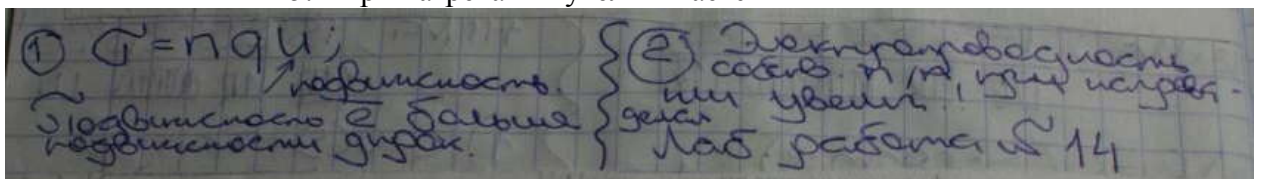 ① σ = nqu;
подвижность.
Подвижность e̅ больше
подвижности дырок.
② Электропроводность
собств. п/п, при
увелич.
делал
Лаб. работа № 14